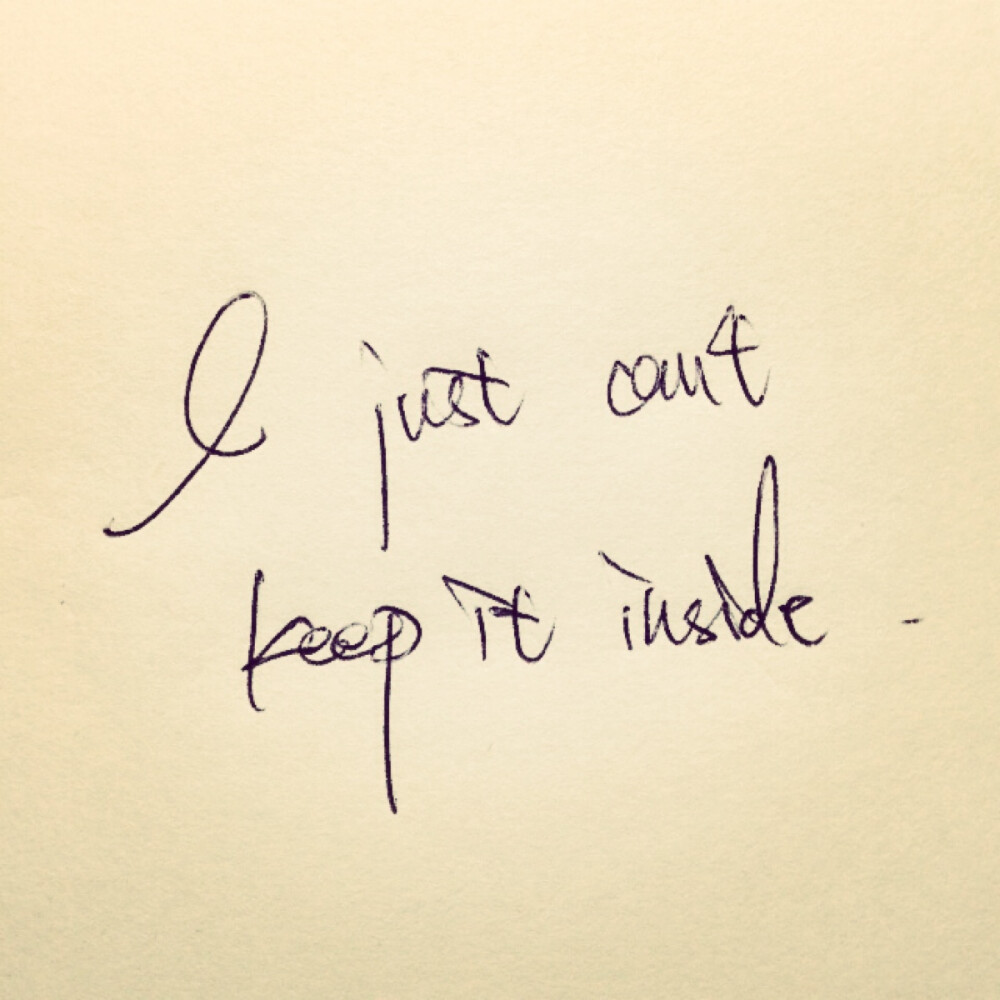 I just can't
keep it inside.